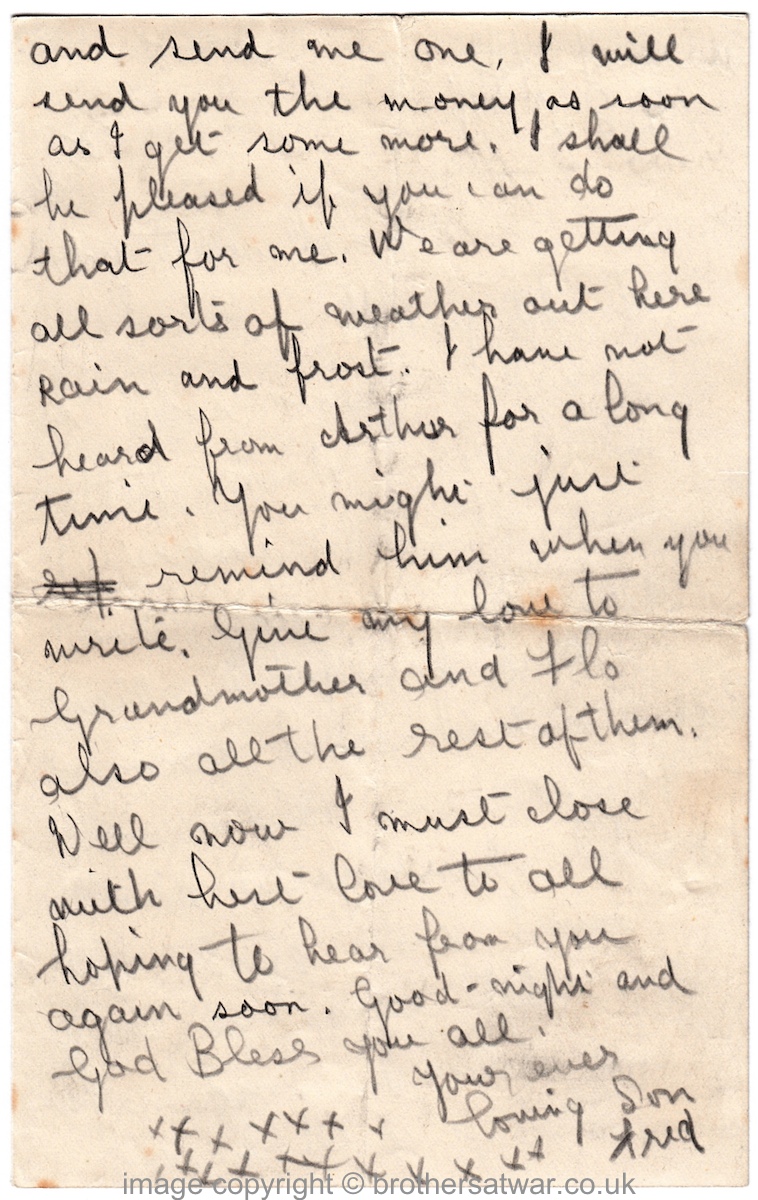 and send me one, I will
send you the money as soon
as I get some more. I shall
be pleased if you can do
that for me. We are getting
all sorts of weather out here
Rain and frost. I have not
heard from Arthur for a long
time. You might just
remind him when you
write. Give my love to
Grandmother and Flo
also all the rest of them.
Well now I must close
with best love to all
hoping to hear from you
again soon. Good-night and
God Bless you all.
Your ever
loving Son
Fred
x x x x x x x x
x x x x x x x x x x x
image copyright © brothersatwar.co.uk